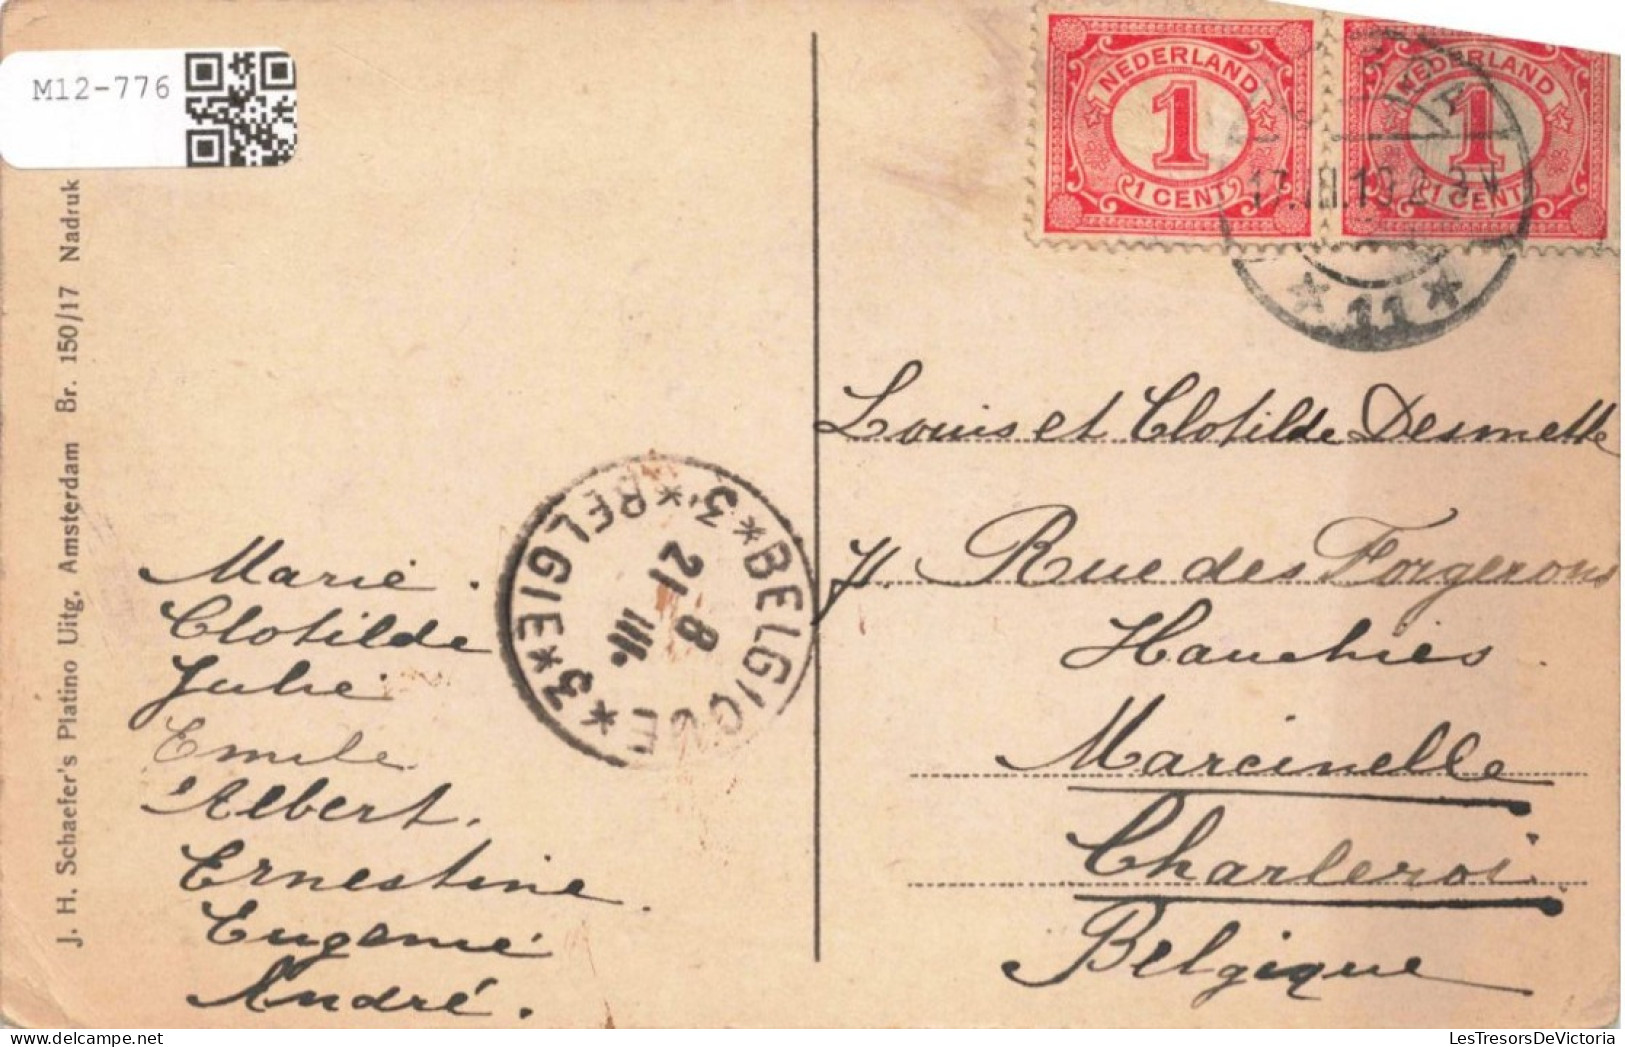 M12-776
J. H. Schaefer's Platino Uitg, Amsterdam Br. 150/17 Nadruk
NEDERLAND
1
1 CENT
NEDERLAND
1
1 CENT
* 11 *
BELGIQUE *3* BELGIE *3*
21 8
III.
Louis et Clotilde Desmette
Rue des Forgerons
Hauchies
Marcinelle
Charleroi
Belgique
Marie.
Clotilde
Julie
Emile
Albert.
Ernestine.
Eugenie
André.
LesTresorsDeVictoria